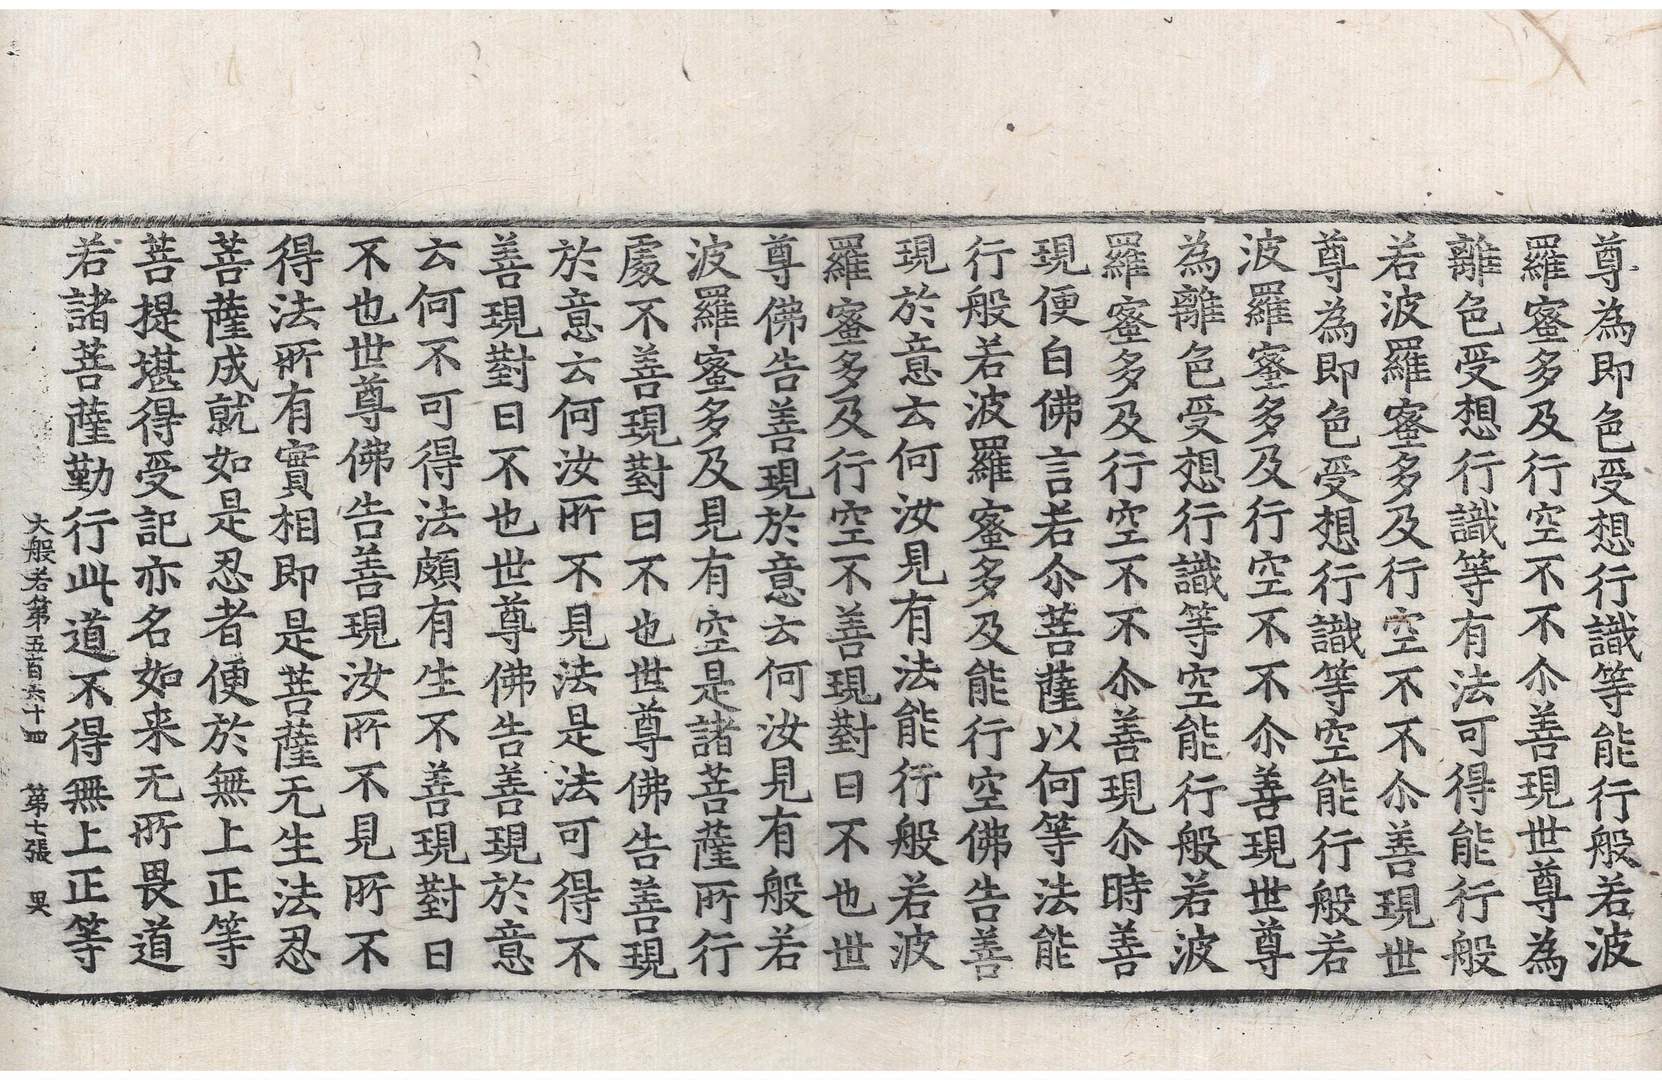 尊為即色受想行識等能行般若波
羅蜜多及行空不不尒善現世尊為
離色受想行識等有法可得能行般
若波羅蜜多及行空不不尒善現世
尊為即色受想行識等空能行般若
波羅蜜多及行空不不尒善現世尊
為離色受想行識等空能行般若波
羅蜜多及行空不不尒善現尒時善
現便白佛言若尒菩薩以何等法能
行般若波羅蜜多及能行空佛告善
現於意云何汝見有法能行般若波
羅蜜多及行空不善現對曰不也世
尊佛告善現於意云何汝見有般若
波羅蜜多及見有空是諸菩薩所行
處不善現對曰不也世尊佛告善現
於意云何汝所不見法是法可得不
善現對曰不也世尊佛告善現於意
云何不可得法頗有生不善現對曰
不也世尊佛告善現汝所不見所不
得法所有實相即是菩薩无生法忍
菩薩成就如是忍者便於無上正等
菩提堪得受記亦名如来无所畏道
若諸菩薩勤行此道不得無上正等
大般若第五百六十四 第七張 昃